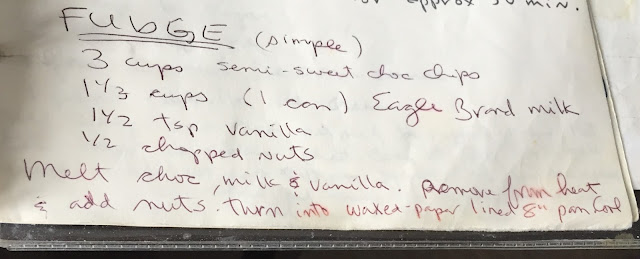 for approx 30 min.
FUDGE (simple)
3 cups semi-sweet choc chips
1 1/3 cups (1 can) Eagle Brand milk
1 1/2 tsp vanilla
1/2 chopped nuts
Melt choc, milk & vanilla. Remove from heat
& add nuts. turn into waxed-paper lined 8" pan Cool